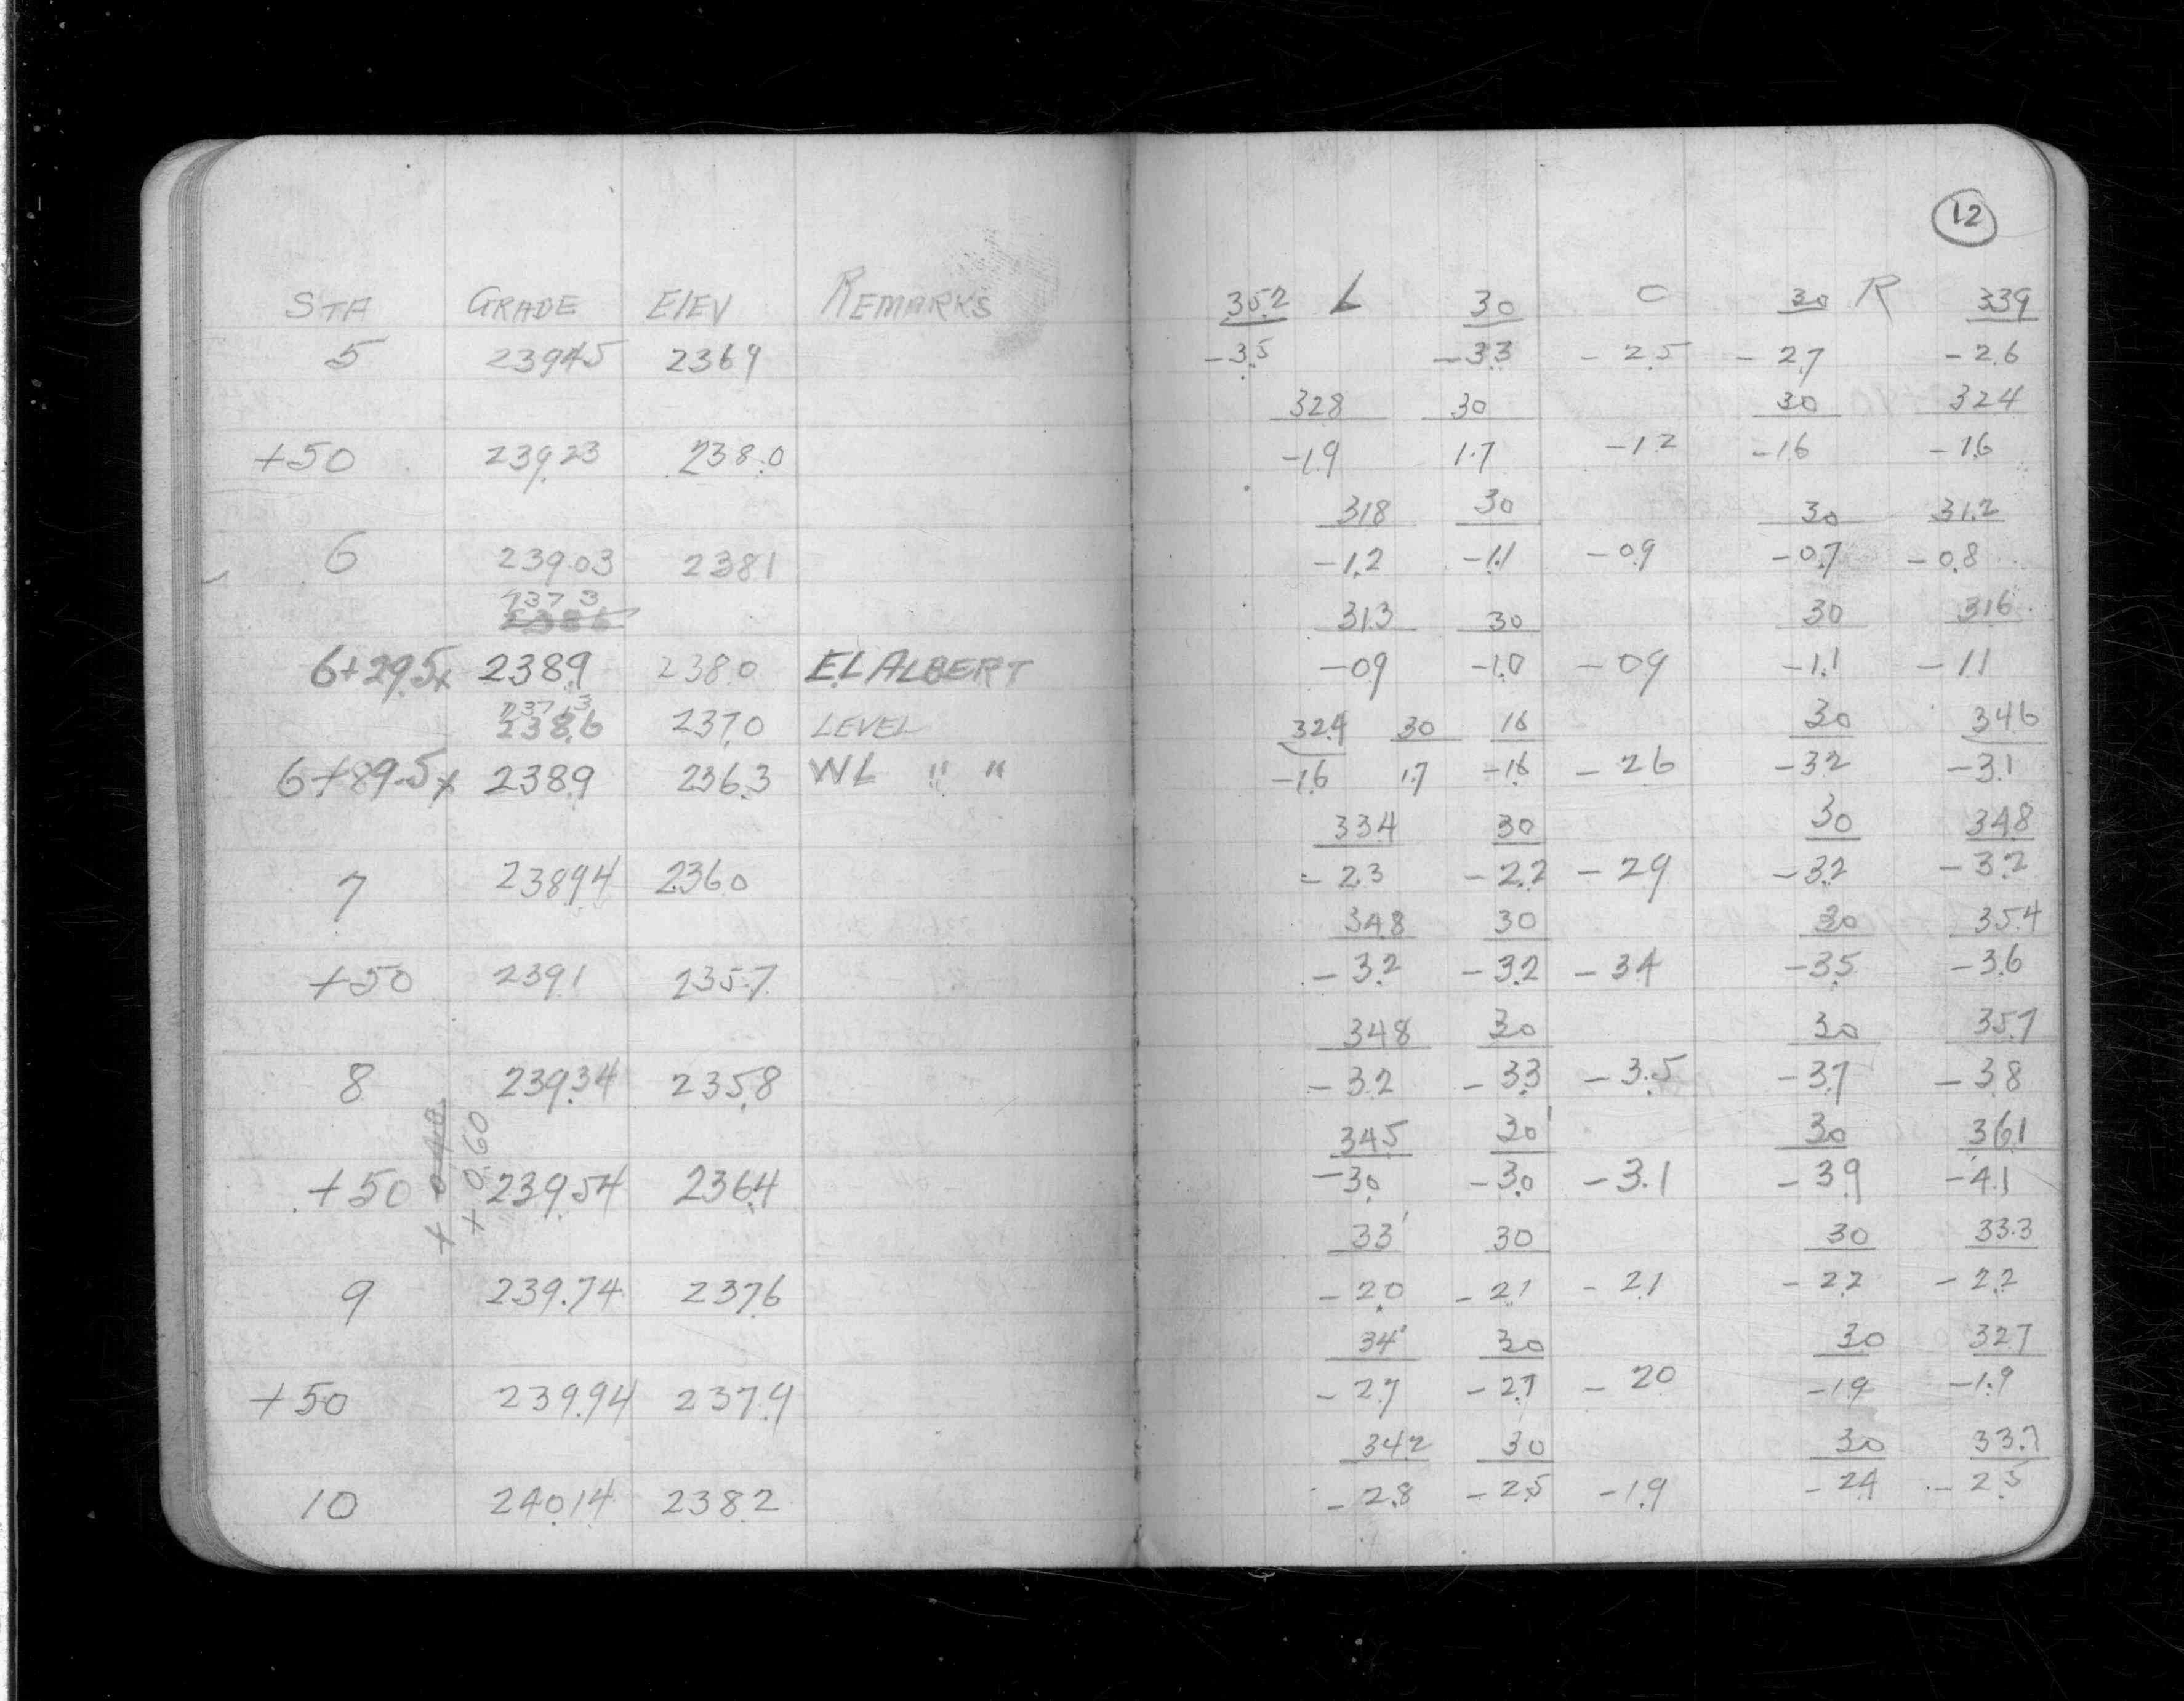 12
STA GRADE ELEV REMARKS 35.2 L 30 C 30 R 33.9
5 239.45 236.9 -3.5 -3.3 -2.5 -2.7 -2.6
32.8 30 30 32.4
+50 239.23 238.0 -1.9 1.7 -1.2 -1.6 -1.6
31.8 30 30 31.2
6 239.03 238.1 -1.2 -1.1 -0.9 -0.7 -0.8
237 3 31.3 30 30 31.6
6+29.5x 238.9 238.0 E.L ALBERT -0.9 -1.0 -0.9 -1.1 -1.1
237.3
238.6 237.0 LEVEL 32.4 30 16 30 34.6
6+89.5x 238.9 236.3 WL " " -1.6 1.7 -1.6 -2.6 -3.2 -3.1
33.4 30 30 34.8
7 238.94 236.0 -2.3 -2.2 -2.9 -3.2 -3.2
34.8 30 30 35.4
+50 239.1 235.7 -3.2 -3.2 -3.4 -3.5 -3.6
34.8 30 30 35.7
8 239.34 235.8 -3.2 -3.3 -3.5 -3.7 -3.8
+0.40
+0.60
34.5 30' 30 36.1
+50 239.54 236.4 -3.0 -3.0 -3.1 -3.9 -4.1
33' 30 30 33.3
9 239.74 237.6 -2.0 -2.1 -2.1 -2.2 -2.2
34' 30 30 32.7
+50 239.94 237.9 -2.7 -2.7 -2.0 -1.9 -1.9
34.2 30 30 33.7
10 240.14 238.2 -2.8 -2.5 -1.9 -2.4 -2.5